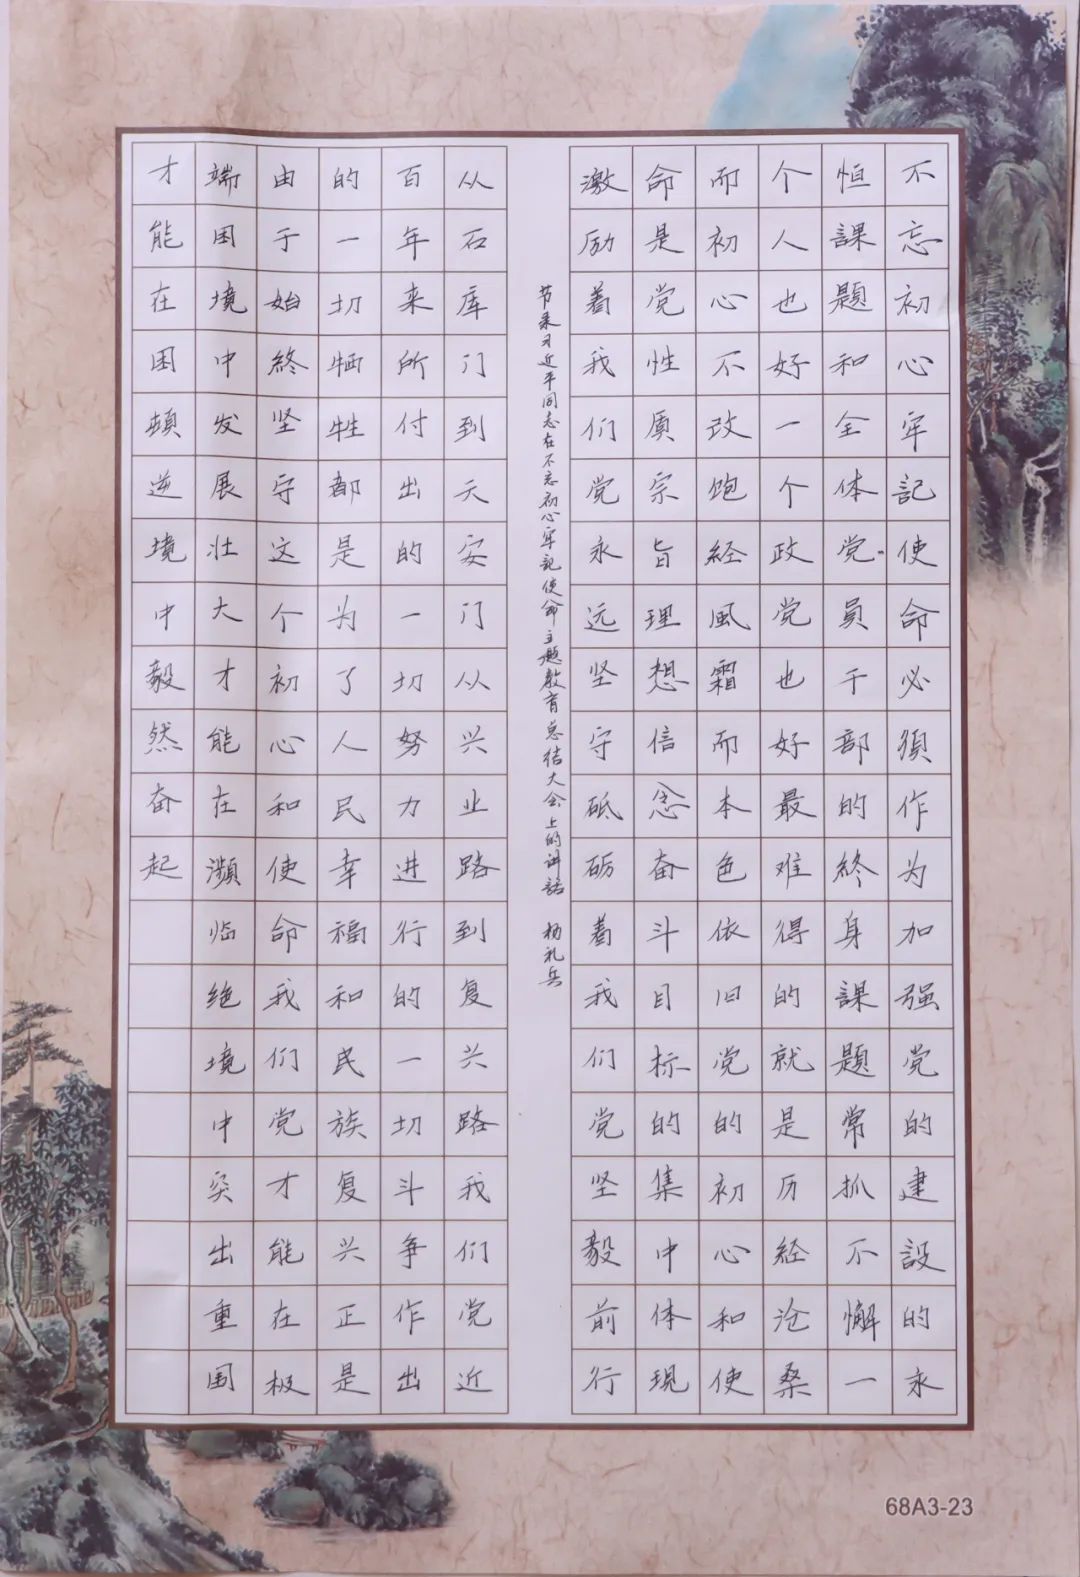 不忘初心牢記使命必須作为加强党的建設的永
恒課題和全体党員干部的終身課題常抓不懈一
个人也好一个政党也好最难得的就是历経沧桑
而初心不改饱經風霜而本色依旧党的初心和使
命是党性质宗旨理想信念奋斗目标的集中体現
激励着我们党永远坚守砥砺着我们党坚毅前行
节录习近平同志在不忘初心牢記使命主题教育总结大会上的讲話 杨礼兵
从石库门到天安门从兴业路到复兴路我们党近
百年来所付出的一切努力进行的一切斗争作出
的一切牺牲都是为了人民幸福和民族复兴正是
由于始終坚守这个初心和使命我们党才能在极
端困境中发展壮大才能在瀕临绝境中突出重围
才能在困顿逆境中毅然奋起
68A3-23